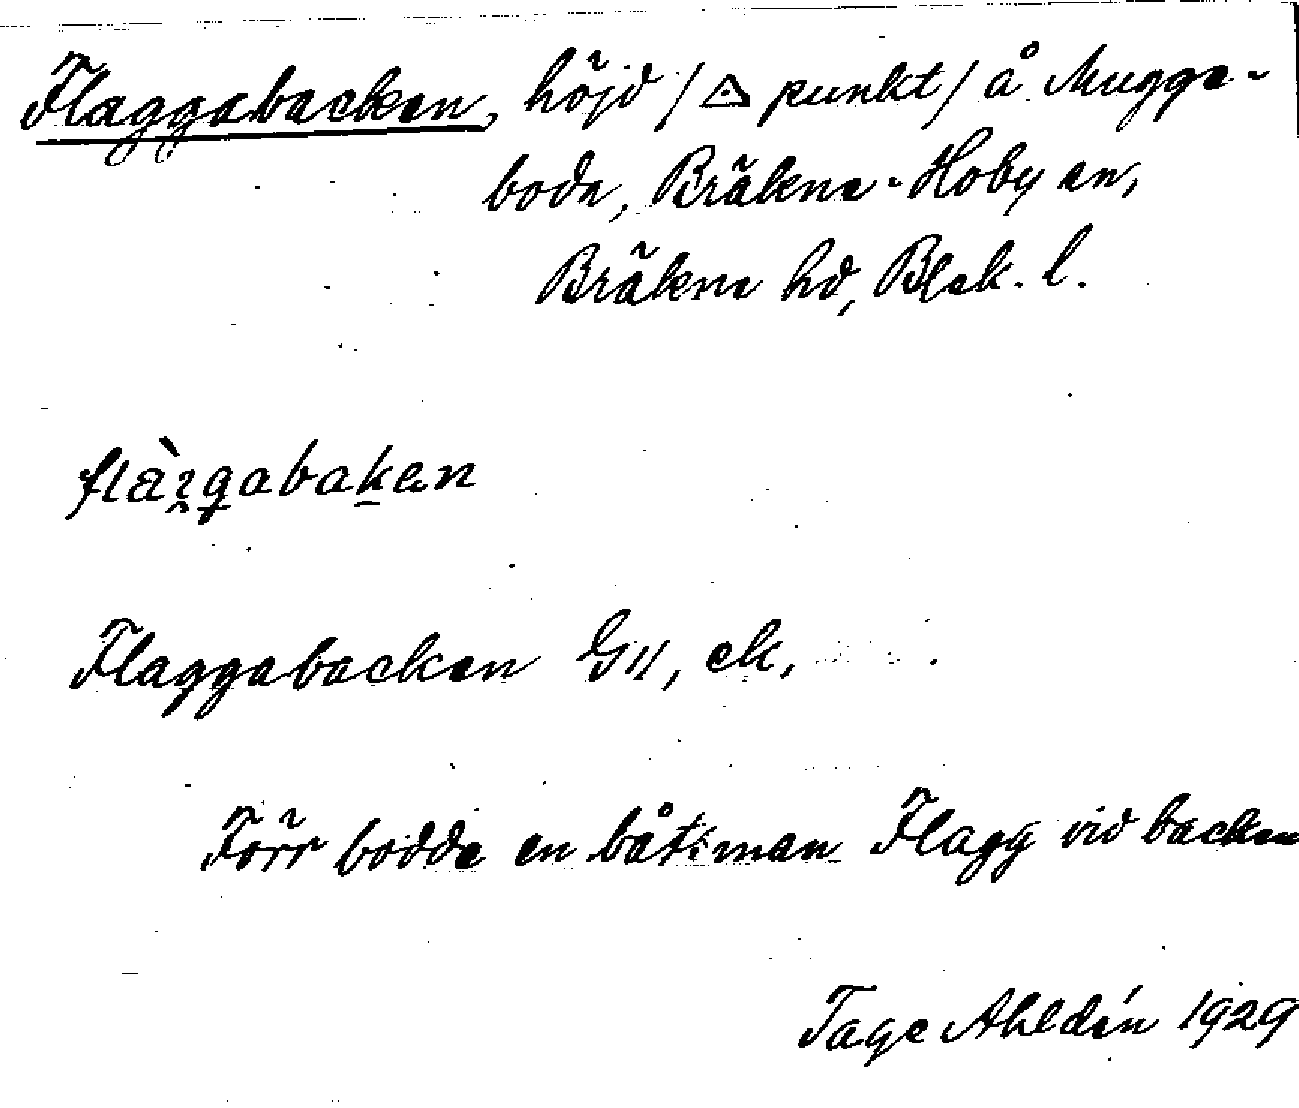 Flaggabacken, höjd /△ punkt/ å Mugge-
boda, Bräkne-Hoby sn,
Bräkne hd, Blek. l.
Flaggabacken G11, ek,
Förr bodde en båtsman Flagg vid backen
Tage Ahldén 1929